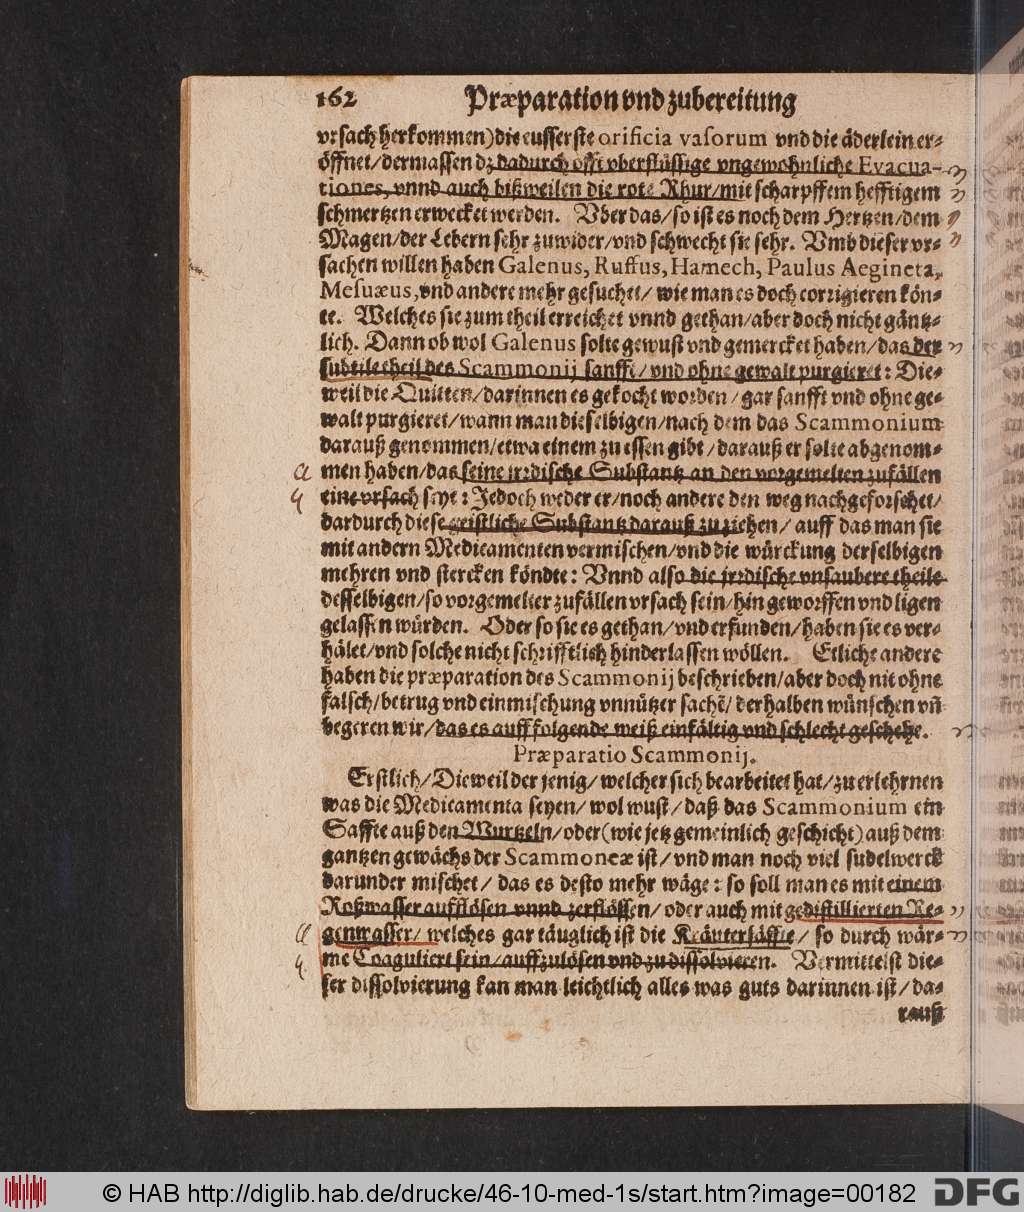 162 Præparation vnd zubereitung
vrsach herkommen) die eusserste orificia vasorum vnd die äderlein er-
öffnet/ dermassen dz dadurch offt vberflüssige vngewohnliche Evacua-
tiones, vnnd auch bißweilen die rote Rhur/ mit scharpffem hefftigem
schmertzen erwecket werden. Vber das/ so ist es noch dem Hertzen/ dem
Magen/ der Lebern sehr zuwider/ vnd schwecht sie sehr. Vmb dieser vr-
sachen willen haben Galenus, Ruffus, Hamech, Paulus Aegineta,
Mesuæus, vnd andere mehr gesuchet/ wie man es doch corrigieren kön-
te. Welches sie zum theil erreichet vnnd gethan/ aber doch nicht gäntz-
lich. Dann ob wol Galenus solte gewust vnd gemercket haben/ das der
subtile theil des Scammonij sanfft/ vnd ohne gewalt purgieret: Die-
weil die Quitten/ darinnen es gekocht worden/ gar sanfft vnd ohne ge-
walt purgieret/ wann man dieselbigen/ nach dem das Scammonium
darauß genommen/ etwa einem zu essen gibt/ darauß er solte abgenom-
men haben/ das seine irrdische Substantz an den vorgemelten zufällen
eine vrsach seye: Jedoch weder er/ noch andere den weg nachgeforschet/
dardurch diese geistliche Substantz darauß zu ziehen/ auff das man sie
mit andern Medicamenten vermischen/ vnd die würckung derselbigen
mehren vnd stercken köndte: Vnnd also die jrrdische vnsaubere theile
desselbigen/ so vorgemelter zufällen vrsach sein/ hin geworffen vnd ligen
gelassen würden. Oder so sie es gethan/ vnd erfunden/ haben sie es ver-
hälet/ vnd solche nicht schrifftlich hinderlassen wöllen. Etliche andere
haben die præparation des Scammonij beschrieben/ aber doch nit ohne
falsch/ betrug vnd einmischung vnnützer sachẽ/ derhalben wünschen vñ
begeren wir/ das es auff folgende weiß einfältig vnd schlecht geschehe.
Præparatio Scammonij.
Erstlich/ Dieweil der jenig/ welcher sich bearbeitet hat/ zu erlehrnen
was die Medicamenta seyen/ wol wust/ daß das Scammonium ein
Saffte auß den Wurtzeln/ oder (wie jetz gemeinlich geschicht) auß dem
gantzen gewächs der Scammoneæ ist/ vnd man noch viel sudelwerck
darunder mischet/ das es desto mehr wäge: so soll man es mit einem
Roßwasser aufflösen vnnd zerflössen/ oder auch mit gedistillierten Re-
genwasser/ welches gar täuglich ist die Kräutersäffte/ so durch wär-
me Coaguliert sein/ auffzulösen vnd zu dissolvieren. Vermittelst die-
ser dissolvierung kan man leichtlich alles was guts darinnen ist/ da-
rauß
© HAB http://diglib.hab.de/drucke/46-10-med-1s/start.htm?image=00182
DFG